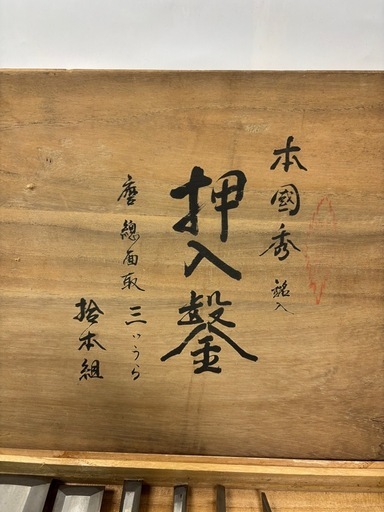 本國秀 銘入
押入鑿
磨 總面取 三ツうら
拾本組